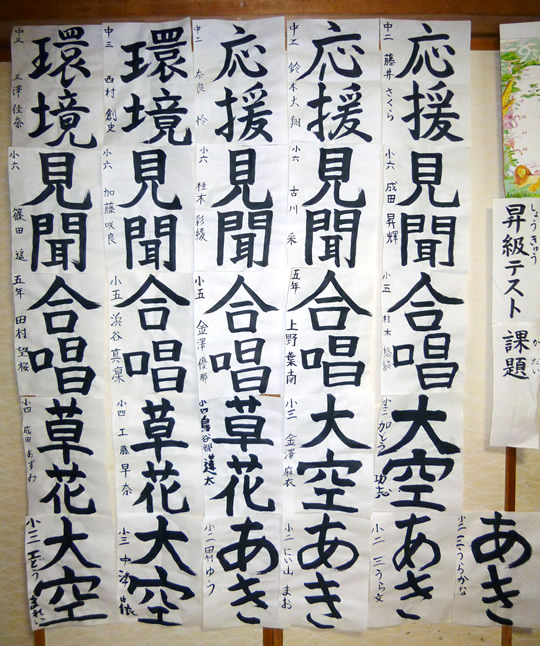 昇級テスト 課題
しょうきゅう かだい
応援
中二 藤井 さくら
応援
鈴木 大翔
応援
中二 奈良 怜
環境
中三 西村 創史
環境
中三 玉澤 佳奈
見聞
小六 成田 昇輝
見聞
小六 古川 采
見聞
小六 桂木 彩綾
見聞
小六 加藤 咲良
見聞
小六 篠田
合唱
小五 桂木
合唱
五年 上野 葉南
合唱
小五 金澤 優那
合唱
小五 浜谷 真凛
合唱
五年 田村 望桜
大空
小三 かとう
大空
小三 金澤 麻衣
草花
小四
草花
小四 工藤 早奈
草花
小四 成田 あすみ
あき
小二 三うらかな
あき
小二 三うら文
あき
小二 にい山 まお
あき
小二 田竹 ゆう
大空
小三 中
大空
小三